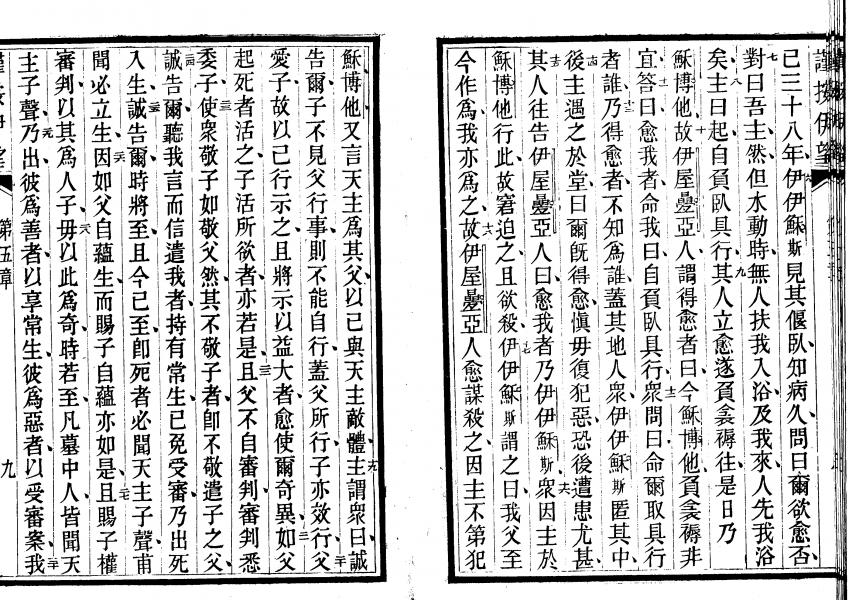 已三十八年伊伊穌斯見其偃臥知病久問曰爾欲愈否
七對曰吾主然但水動時無人扶我入浴及我來人先我浴
矣八主曰起自負臥具行九其人立愈遂負衾褥往是日乃
穌博他故十伊屋叠亞人謂得愈者曰今穌博他負衾褥非
宜十一答曰愈我者命我曰自負臥具行十二衆問曰命爾取具行
者誰十三乃得愈者不知爲誰蓋其地人衆伊伊穌斯匿其中
十四後主遇之於堂曰爾旣得愈愼毋復犯惡恐後遭患尤甚
十五其人往告伊屋叠亞人曰愈我者乃伊伊穌斯十六衆因主於
穌博他行此故窘迫之且欲殺十七伊伊穌斯謂之曰我父至
今作爲我亦爲之十八故伊屋叠亞人愈謀殺之因主不第犯
穌博他又言天主爲其父以已與天主敵體十九主謂衆曰誠
告爾子不見父行事則不能自行蓋父所行子亦效行二十父
愛子故以已行示之且將示以益大者愈使爾奇異二一如父
起死者活之子活所欲者亦若是二二且父不自審判審判悉
委子二三使衆敬子如敬父然其不敬子者卽不敬遣子之父
二四誠告爾聽我言而信遣我者持有常生已免受審乃出死
入生二五誠告爾時將至且今已至卽死者必聞天主子聲甫
聞必立生二六因如父自蘊生而賜子自蘊亦如是二七且賜子權
審判以其爲人子二八毋以此爲奇時若至凡墓中人皆聞天
主子聲二九乃出彼爲善者以享常生彼爲惡者以受審案三十我
第五章
九